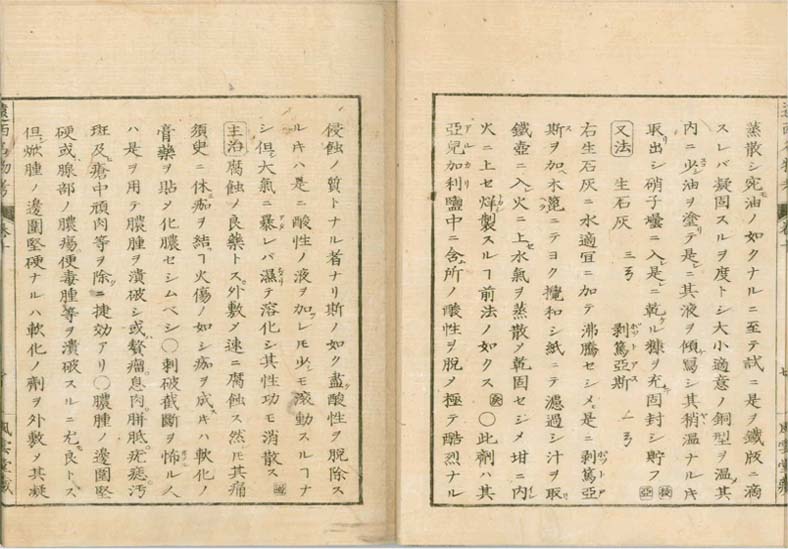 蒸散シ宛モ油ノ如クナルニ至テ試ニ是ヲ鐵版ニ滴
スレバ凝固スルヲ度トシ大小適意ノ銅型ヲ温メ其
内ニ少シ油ヲ塗テ是ニ其液ヲ傾瀉シ其稍温ナルヰ
取リ出シ硝子壜ニ入レ是ニ乾ケル糠ヲ充テ固封シ貯フ
又法 生石灰 三 剥篤亞斯 一
右生石灰ニ水適宜ニ加テ沸騰セシメ是ニ剥篤亞
斯ヲ加ヘ木篦ニテヨク攪和シ紙ニテ濾過シ汁ヲ取リ
鐵壺ニ入レ火ニ上セ水氣ヲ蒸散メ乾固セシメ坩ニ内レ
火ニ上セ煆製スルヿ前法ノ如クス 〇此劑ハ其
亞兒加利鹽中ニ含ム所ノ酸性ヲ脱メ極テ酷烈ナル
侵蝕ノ質トナル者ナリ斯ノ如ク盡ク酸性ヲ脱除ス
ルヰハ是ニ酸性ノ液ヲ加フレモ少シモ滾動スルヿナ
シ但シ大氣ニ暴レバ濕テ溶化シ其性功モ消散ス
主治 腐蝕ノ良藥トス外敷メ速ニ腐蝕ス然モ其痛
須臾ニ休ム痂ヲ結フヿ火傷ノ如シ痂ヲ成サハ軟化ノ
膏藥ヲ貼メ化膿セシムベシ〇刺破截斷ヲ怖ルル人
ハ是ヲ用テ膿腫ヲ潰破シ或ハ贅瘤息肉胼胝疣痣汚
斑及ヒ瘡中頑肉等ヲ除クニ捷効アリ〇膿腫ノ邊圍堅
硬或ハ腺部ノ膿瘍便毒腫等ヲ潰破スルニ尤モ良トス
但シ焮腫ノ邊圍堅硬ナルハ軟化ノ劑ヲ外敷メ其凝
風雲堂藏